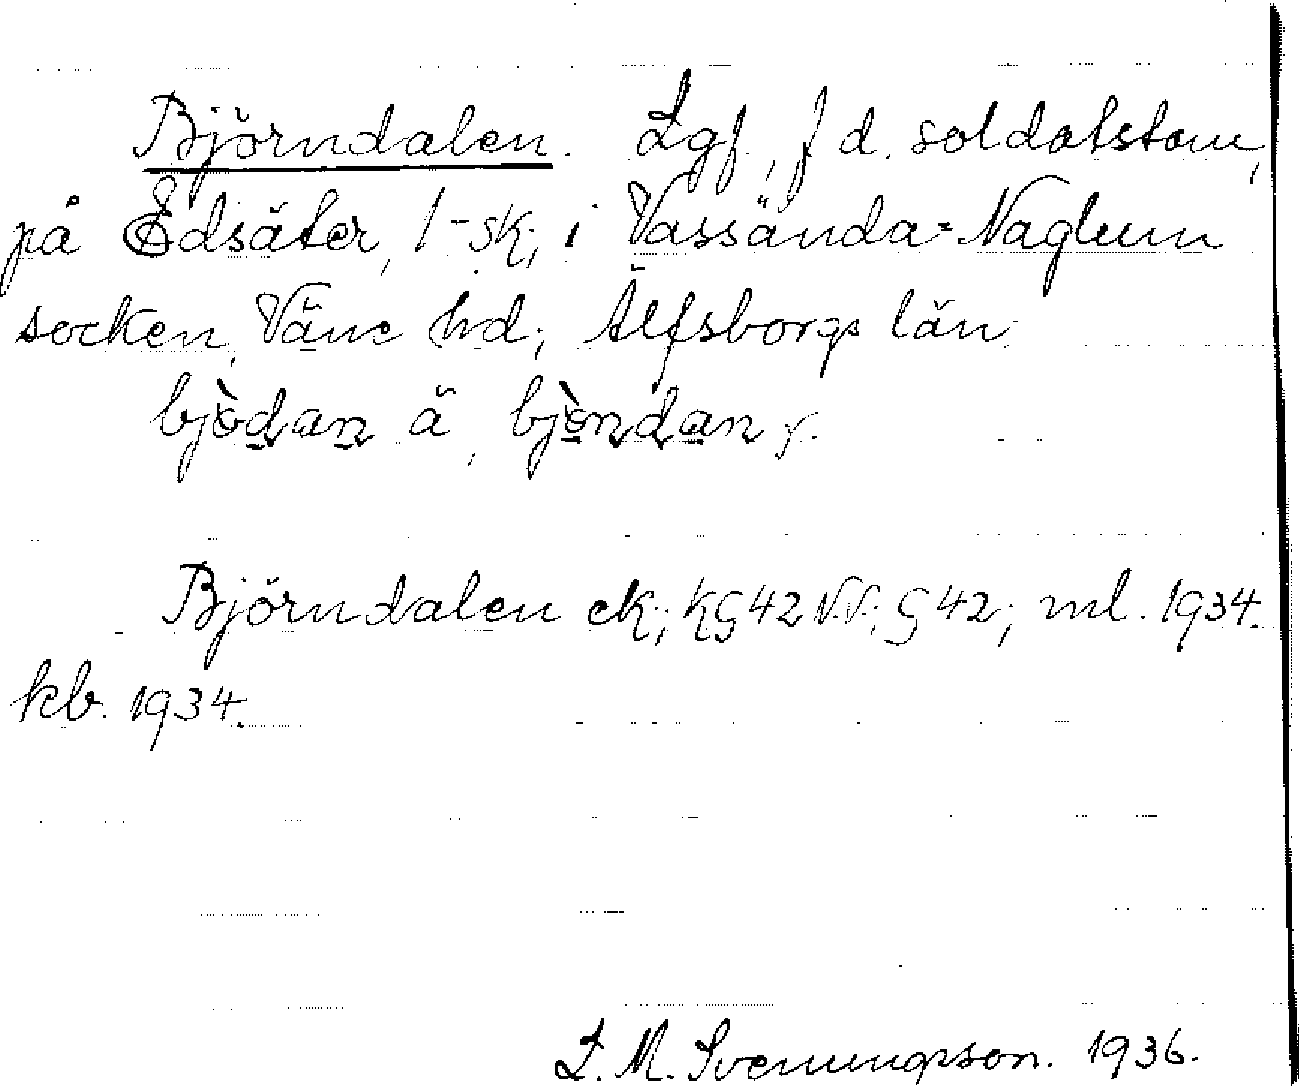 Björndalen. Lgf., f d. soldatstom,
på Edsäter, 1-sk; i Vassända-Naglum
socken, Väne hd; Älfsborgs län.
bjòdan ä, bjòndan y.
Björndalen ek; kG 42 N.V; G 42; ml. 1934.
kb. 1934.
L. M. Svenungsson. 1936.